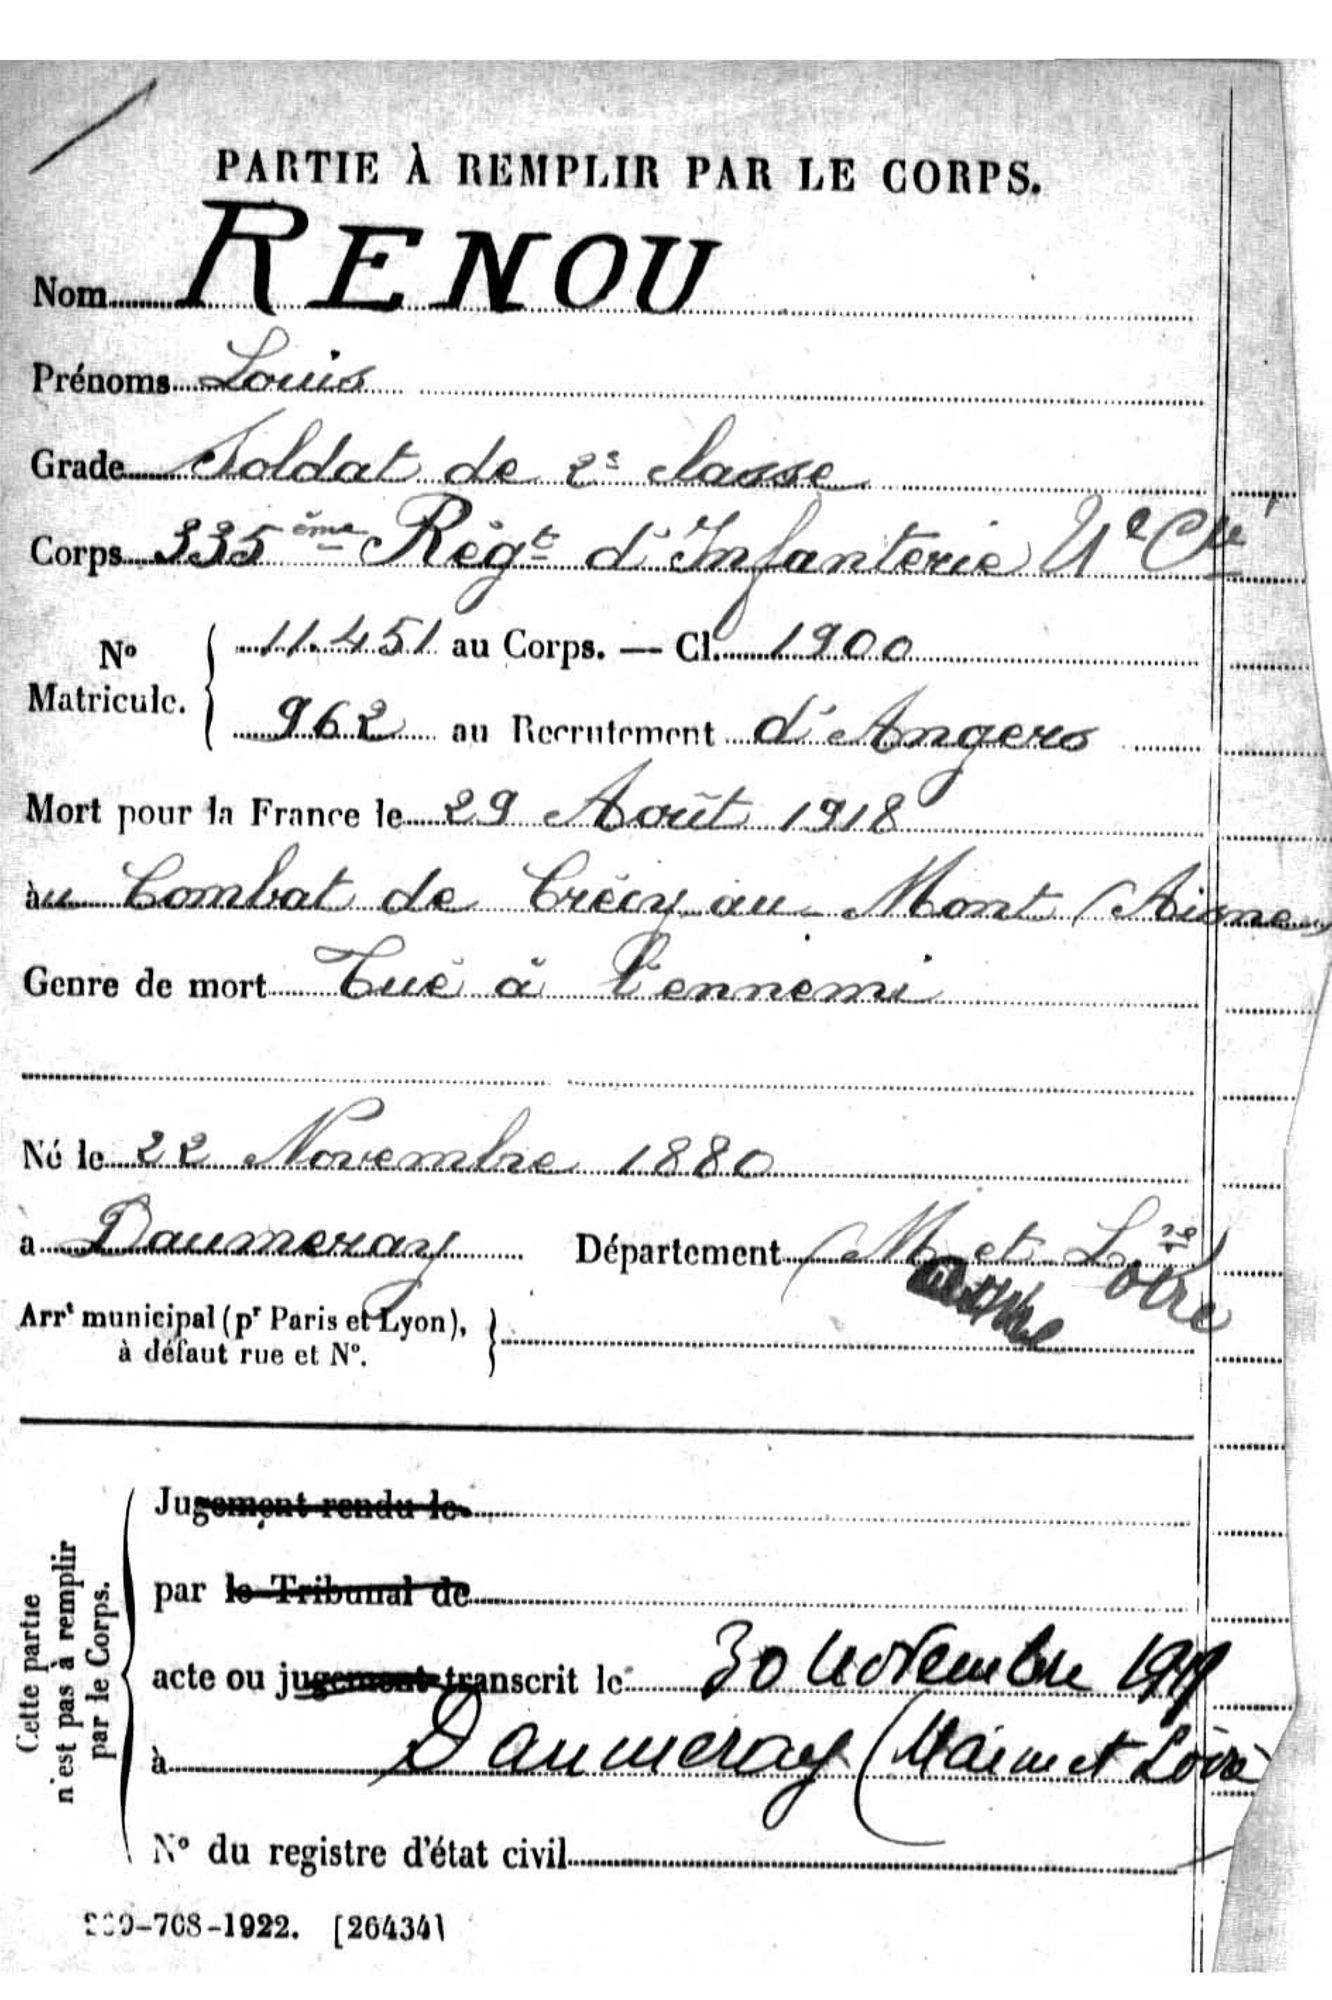 PARTIE À REMPLIR PAR LE CORPS.
Nom RENOU
Prénoms Louis
Grade Soldat de 2e classe
Corps 335ème Régt d'Infanterie Cie
No Matricule. 11.451 au Corps. — Cl. 1900
962 au Recrutement d'Angers
Mort pour la France le 29 Août 1918
àu Combat de Crécy au Mont (Aisne)
Genre de mort Tué à l'ennemi
Né le 22 Novembre 1880
a Daumeray Département (M et Loire
Arrt municipal (pr Paris et Lyon),
à défaut rue et No.
Cette partie
n'est pas à remplir
par le Corps.
Jugement rendu le
par le Tribunal de
acte ou jugement transcrit le 30 Novembre 1919
à Daumeray (Maine et Loire
No du registre d'état civil
-708-1922. [26434]